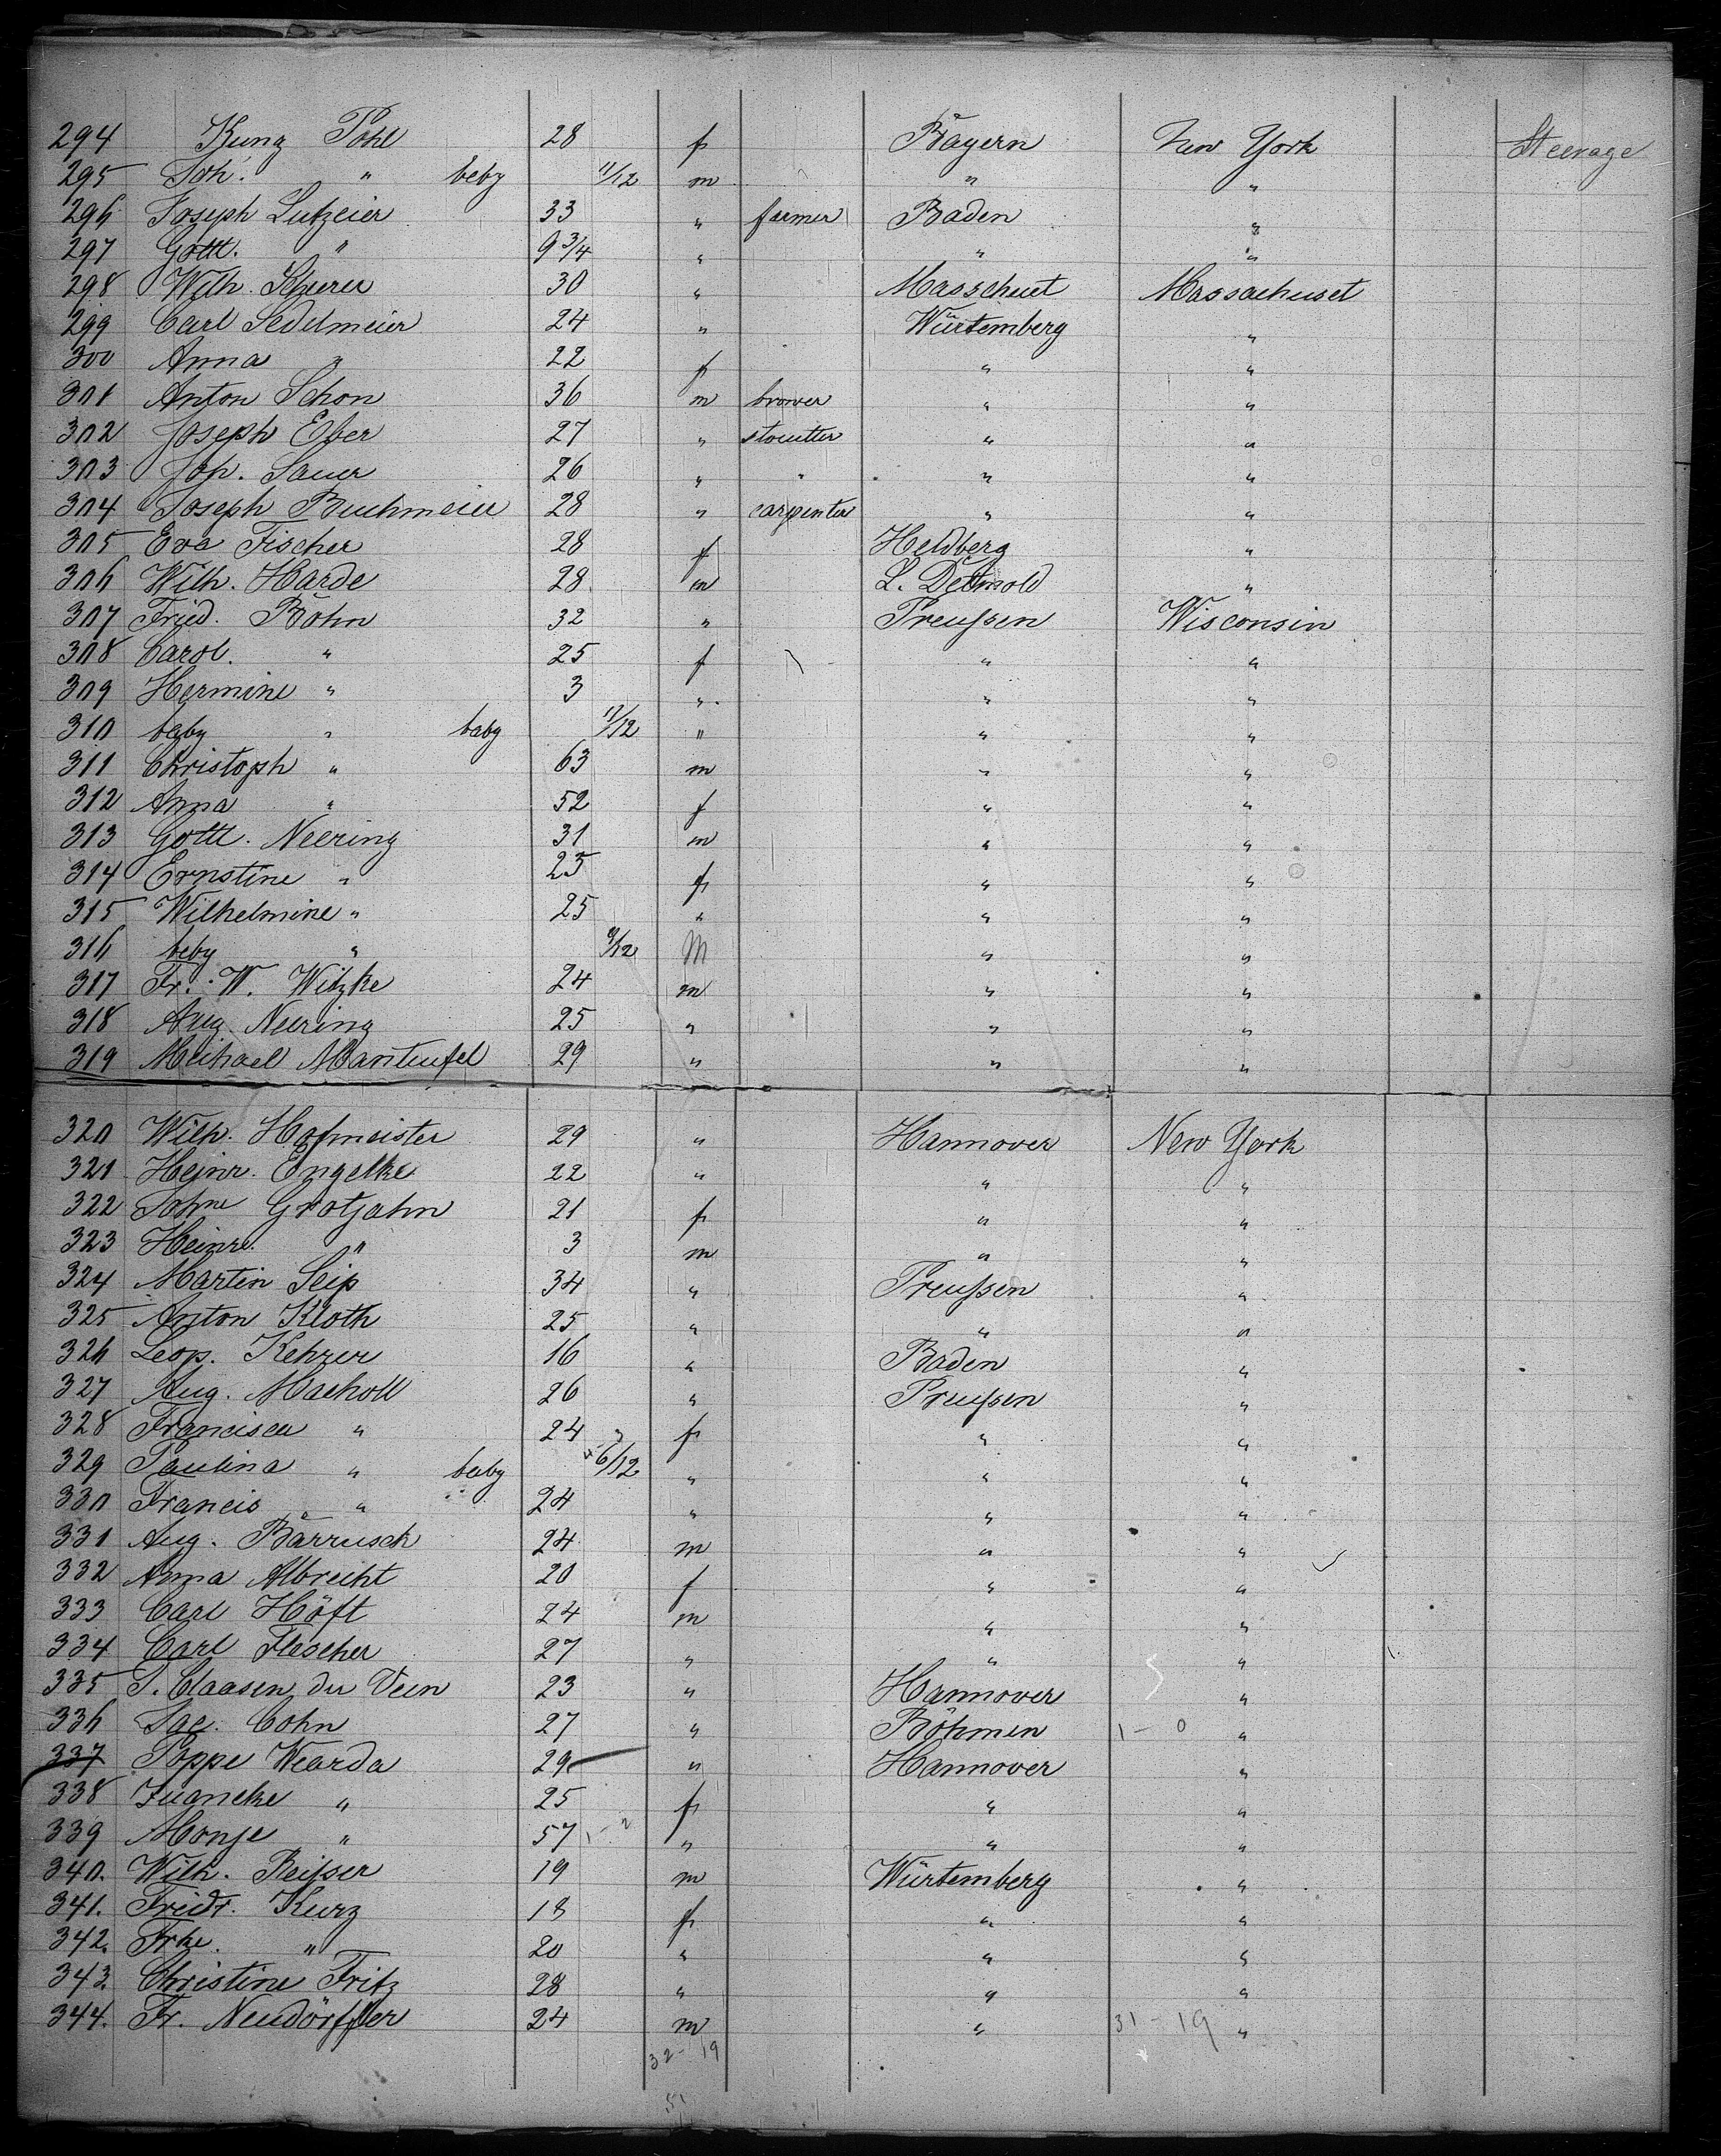 294 Kung Pohl 28 f Bayern New York Steerage
295 Joh. " beby 11/12 m " "
296 Joseph Lutzeier 33 " farmer Baden "
297 Gottl. " 9 3/4 " " "
298 Wilh. Scheurer 30 " Masschuet Massachuset
299 Carl Sedelmeier 24 " Würtemberg "
300 Anna " 22 f " "
301 Anton Schon 36 m brower " "
302 Joseph Eber 27 " stoeutter " "
303 Joh. Sauer 26 " " " "
304 Joseph Buchmeier 28 " carpenter " "
305 Eva Fischer 28 f Heldberg "
306 Wilh. Harde 28 m L. Detmold "
307 Fried. Böhn 32 " Preußen Wisconsin
308 Carol. " 25 f " "
309 Hermine " 3 " " "
310 baby " baby 11/12 " " "
311 Christoph " 63 m " "
312 Anna " 52 f " "
313 Gottl. Neering 31 m " "
314 Ernstine " 25 f " "
315 Wilhelmine " 25 " " "
316 beby " 9/12 M " "
317 Fr. W. Witzke 24 m " "
318 Aug. Neering 25 " " "
319 Michael Manteufel 29 " " "
320 Wilh. Hofmeister 29 " Hannover New York
321 Heinr. Engelke 22 " " "
322 Johne Grotjahn 21 f " "
323 Heinr. " 3 m " "
324 Martin Seip 34 " Preußen "
325 Anton Kloth 25 " " "
326 Leop. Kehrer 16 " Baden "
327 Aug. Macholl 26 " Preußen "
328 Francisca " 24 f " "
329 Paulina " baby 6/12 " " "
330 Francis " 24 " " "
331 Aug. Bärrusch 24 m " "
332 Anna Albrecht 20 f " "
333 Carl Höft 24 m " "
334 Carl Flascher 27 " " "
335 P. Claasen der Veen 23 " Hannover "
336 Jac. Cohn 27 " Böhmen 1 - 0 "
337 Poppe Wearda 29 " Hannover "
338 Juancke " 25 f " "
339 Monje " 57 1 - 2 " " "
340. Wilh. Beißer 19 m Würtemberg "
341. Fridr. Kurz 18 f " "
342. Frke. " 20 " " "
343. Christine Fritz 28 " " "
344. Fr. Neudörffer 24 m " 31 - 19 "
32 - 19
51